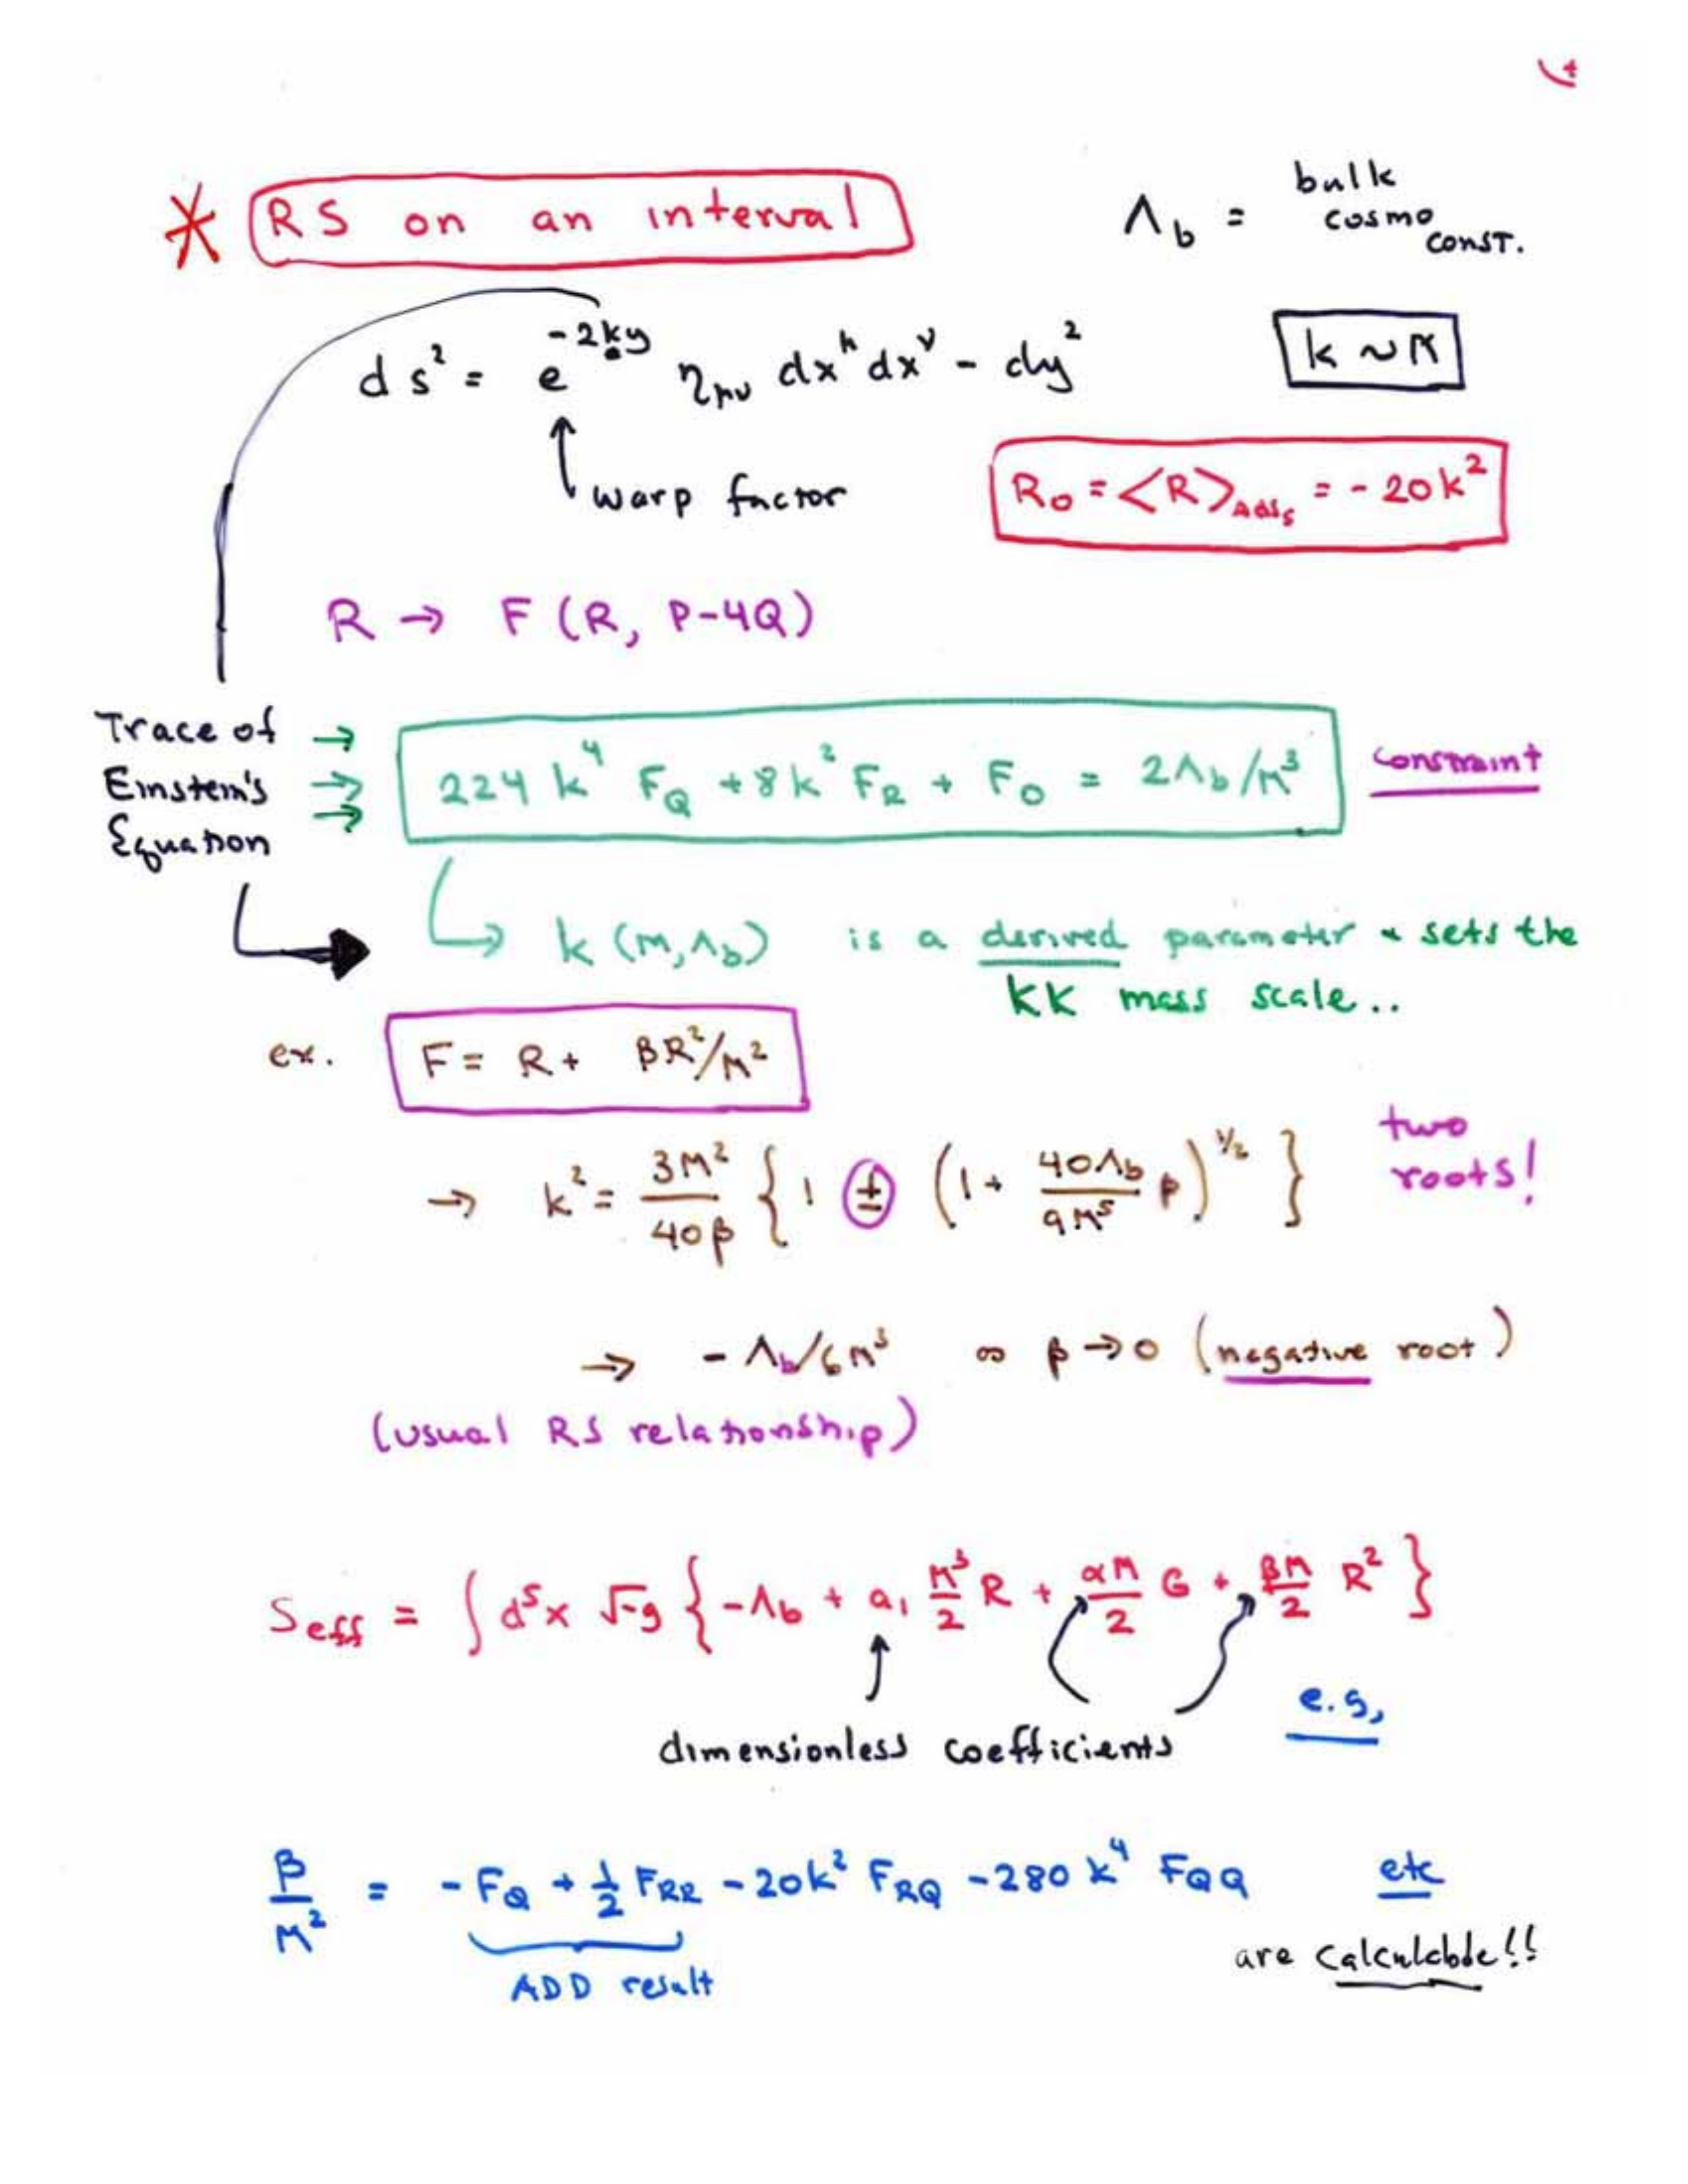 4
* RS on an interval
Λ_b = bulk cosmo const.
ds² = e^{-2ky} η_{μν} dx^μ dx^ν - dy²
k ~ M
warp factor
R_0 = <R>_{AdS_5} = -20k²
R → F(R, P-4Q)
Trace of
Einstein's
Equation
→ → →
224 k⁴ F_Q + 8k² F_R + F_0 = 2Λ_b/M³
constraint
↳ k(M,Λ_b) is a derived parameter & sets the
KK mass scale..
ex. F = R + βR²/M²
→ k² = \frac{3M²}{40β} { 1 ± (1 + \frac{40Λ_b}{9M⁵} β)^{1/2} }
two
roots!
→ -Λ_b/6M³ as β→0 (negative root)
(usual RS relationship)
S_eff = ∫ d⁵x √-g { -Λ_b + a_1 \frac{M³}{2} R + \frac{αM}{2} G + \frac{βM}{2} R² }
dimensionless coefficients
e.g,
\frac{β}{M²} = -F_Q + \frac{1}{2} F_{RR} - 20k² F_{RQ} - 280 k⁴ F_{QQ} etc
ADD result
are calculable!!